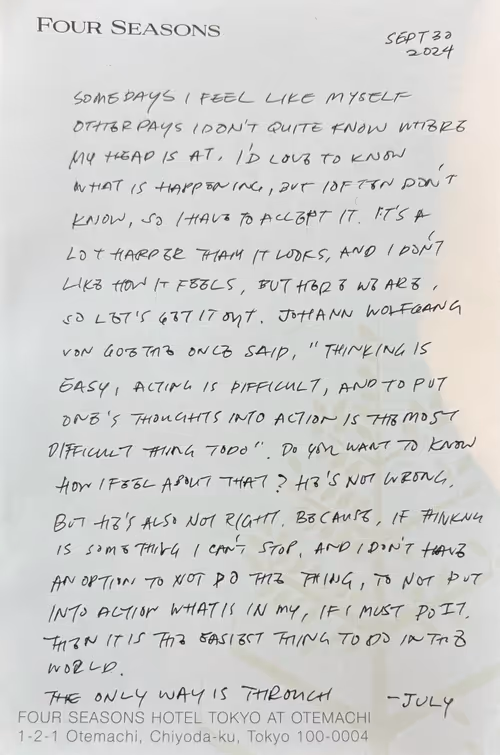 FOUR SEASONS
SEPT 30
2024
SOMEDAYS I FEEL LIKE MYSELF
OTHERDAYS I DON'T QUITE KNOW WHERE
MY HEAD IS AT. I'D LOVE TO KNOW
WHAT IS HAPPENING, BUT I OFTEN DON'T
KNOW, SO I HAVE TO ACCEPT IT. IT'S A
LOT HARDER THAN IT LOOKS, AND I DON'T
LIKE HOW IT FEELS, BUT HERE WE ARE,
SO LET'S GET IT OUT. JOHANN WOLFGANG
VON GOETHE ONCE SAID, "THINKING IS
EASY, ACTING IS DIFFICULT, AND TO PUT
ONE'S THOUGHTS INTO ACTION IS THE MOST
DIFFICULT THING TO DO". DO YOU WANT TO KNOW
HOW I FEEL ABOUT THAT? HE'S NOT WRONG.
BUT HE'S ALSO NOT RIGHT. BECAUSE, IF THINKNG
IS SOMETHING I CAN'T STOP, AND I DON'T HAVE
AN OPTION TO NOT DO THE THING, TO NOT PUT
INTO ACTION WHAT IS IN MY, IF I MUST DO IT.
THEN IT IS THE EASIEST THING TO DO IN THE
WORLD.
THE ONLY WAY IS THROUGH
-JULY
FOUR SEASONS HOTEL TOKYO AT OTEMACHI
1-2-1 Otemachi, Chiyoda-ku, Tokyo 100-0004